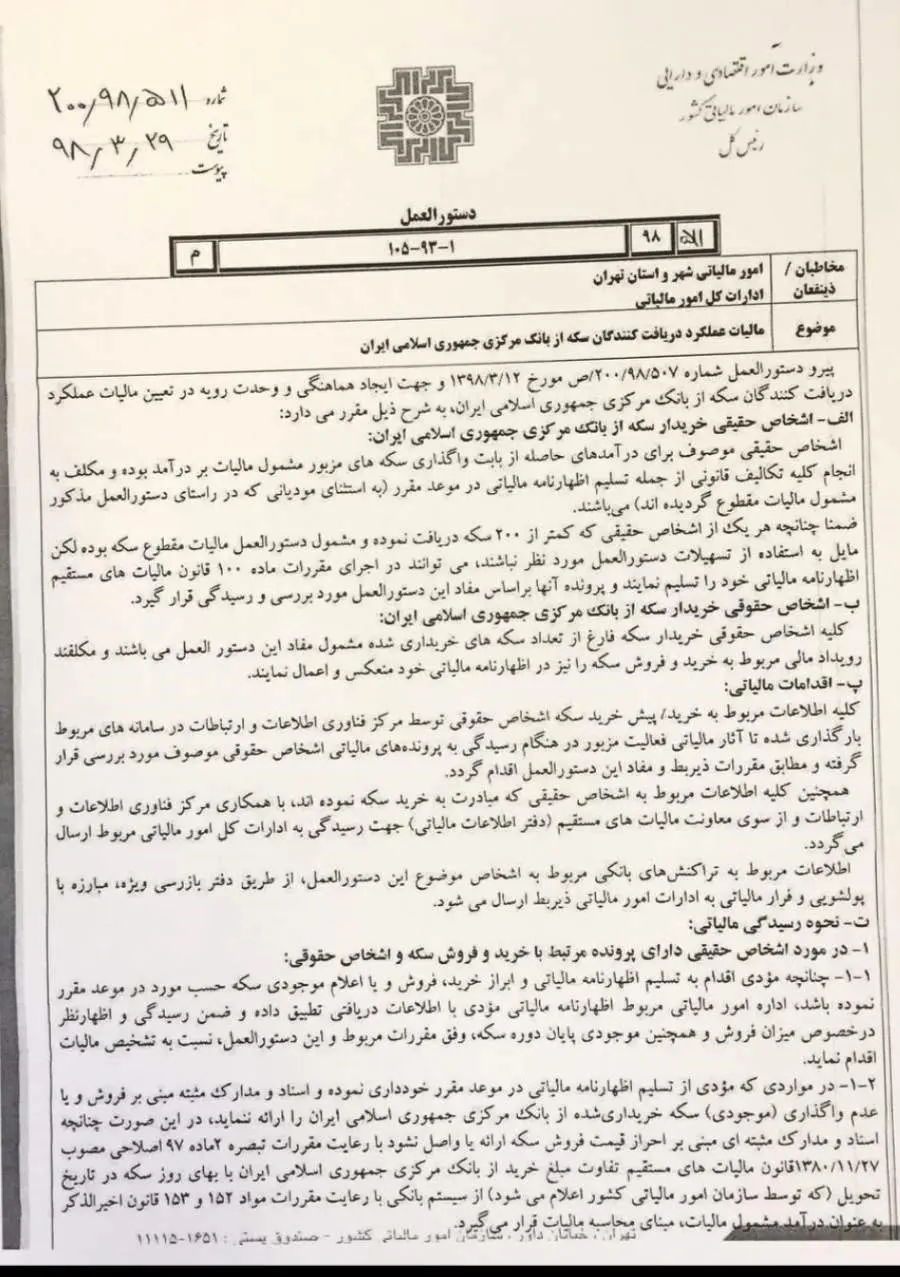 وزارت امور اقتصادی و دارایی
سازمان امور مالیاتی کشور
رئیس کل
شماره ۲۰۰/۹۸/۵۱۱
تاریخ ۹۸/۳/۲۹
پیوست
دستورالعمل
۵۱۱ ۹۸ ۱-۹۳-۱۰۵ م
مخاطبان / ذینفعان
امور مالیاتی شهر و استان تهران
ادارات کل امور مالیاتی
موضوع
مالیات عملکرد دریافت کنندگان سکه از بانک مرکزی جمهوری اسلامی ایران
پیرو دستورالعمل شماره ۲۰۰/۹۸/۵۰۷/ص مورخ ۱۳۹۸/۳/۱۲ و جهت ایجاد هماهنگی و وحدت رویه در تعیین مالیات عملکرد
دریافت کنندگان سکه از بانک مرکزی جمهوری اسلامی ایران، به شرح ذیل مقرر می دارد:
الف- اشخاص حقیقی خریدار سکه از بانک مرکزی جمهوری اسلامی ایران:
اشخاص حقیقی موصوف برای درآمدهای حاصله از بابت واگذاری سکه های مزبور مشمول مالیات بر درآمد بوده و مکلف به
انجام کلیه تکالیف قانونی از جمله تسلیم اظهارنامه مالیاتی در موعد مقرر (به استثنای مودیانی که در راستای دستورالعمل مذکور
مشمول مالیات مقطوع گردیده اند) می‌باشند.
ضمنا چنانچه هر یک از اشخاص حقیقی که کمتر از ۲۰۰ سکه دریافت نموده و مشمول دستورالعمل مالیات مقطوع سکه بوده لکن
مایل به استفاده از تسهیلات دستورالعمل مورد نظر نباشند، می توانند در اجرای مقررات ماده ۱۰۰ قانون مالیات های مستقیم
اظهارنامه مالیاتی خود را تسلیم نمایند و پرونده آنها براساس مفاد این دستورالعمل مورد بررسی و رسیدگی قرار گیرد.
ب- اشخاص حقوقی خریدار سکه از بانک مرکزی جمهوری اسلامی ایران:
کلیه اشخاص حقوقی خریدار سکه فارغ از تعداد سکه های خریداری شده مشمول مفاد این دستور العمل می باشند و مکلفند
رویداد مالی مربوط به خرید و فروش سکه را نیز در اظهارنامه مالیاتی خود منعکس و اعمال نمایند.
پ- اقدامات مالیاتی:
کلیه اطلاعات مربوط به خرید/ پیش خرید سکه اشخاص حقوقی توسط مرکز فناوری اطلاعات و ارتباطات در سامانه های مربوط
بارگذاری شده تا آثار مالیاتی فعالیت مزبور در هنگام رسیدگی به پرونده‌های مالیاتی اشخاص حقوقی موصوف مورد بررسی قرار
گرفته و مطابق مقررات ذیربط و مفاد این دستورالعمل اقدام گردد.
همچنین کلیه اطلاعات مربوط به اشخاص حقیقی که مبادرت به خرید سکه نموده اند، با همکاری مرکز فناوری اطلاعات و
ارتباطات و از سوی معاونت مالیات های مستقیم (دفتر اطلاعات مالیاتی) جهت رسیدگی به ادارات کل امور مالیاتی مربوط ارسال
می‌گردد.
اطلاعات مربوط به تراکنش‌های بانکی مربوط به اشخاص موضوع این دستورالعمل، از طریق دفتر بازرسی ویژه، مبارزه با
پولشویی و فرار مالیاتی به ادارات امور مالیاتی ذیربط ارسال می شود.
ت- نحوه رسیدگی مالیاتی:
۱- در مورد اشخاص حقیقی دارای پرونده مرتبط با خرید و فروش سکه و اشخاص حقوقی:
۱-۱- چنانچه مؤدی اقدام به تسلیم اظهارنامه مالیاتی و ابراز خرید، فروش و یا اعلام موجودی سکه حسب مورد در موعد مقرر
نموده باشد، اداره امور مالیاتی مربوط اظهارنامه مالیاتی مؤدی با اطلاعات دریافتی تطبیق داده و ضمن رسیدگی و اظهارنظر
درخصوص میزان فروش و همچنین موجودی پایان دوره سکه، وفق مقررات مربوط و این دستورالعمل، نسبت به تشخیص مالیات
اقدام نماید.
۱-۲- در مواردی که مؤدی از تسلیم اظهارنامه مالیاتی در موعد مقرر خودداری نموده و اسناد و مدارک مثبته مبنی بر فروش و یا
عدم واگذاری (موجودی) سکه خریداری‌شده از بانک مرکزی جمهوری اسلامی ایران را ارائه ننماید، در این صورت چنانچه
اسناد و مدارک مثبته ای مبنی بر احراز قیمت فروش سکه ارائه یا واصل نشود با رعایت مقررات تبصره ۲ماده ۹۷ اصلاحی مصوب
۱۳۸۰/۱۱/۲۷قانون مالیات های مستقیم تفاوت مبلغ خرید از بانک مرکزی جمهوری اسلامی ایران با بهای روز سکه در تاریخ
تحویل (که توسط سازمان امور مالیاتی کشور اعلام می شود) از سیستم بانکی با رعایت مقررات مواد ۱۵۲ و ۱۵۳ قانون اخیرالذکر
به عنوان درآمد مشمول مالیات، مبنای محاسبه مالیات قرار می‌گیرد.
تهران ، خیابان داور ، سازمان امور مالیاتی کشور - صندوق پستی : ۱۶۵۱-۱۱۱۱۵